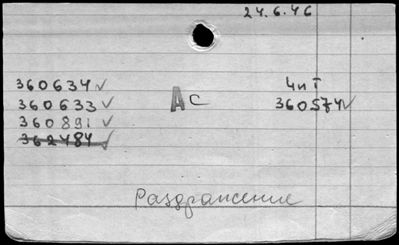 24.6.46
360634 ✓
360633 ✓
360891 ✓
362484 ✓
Ac
4 и Т
360574 ✓
Раздражение